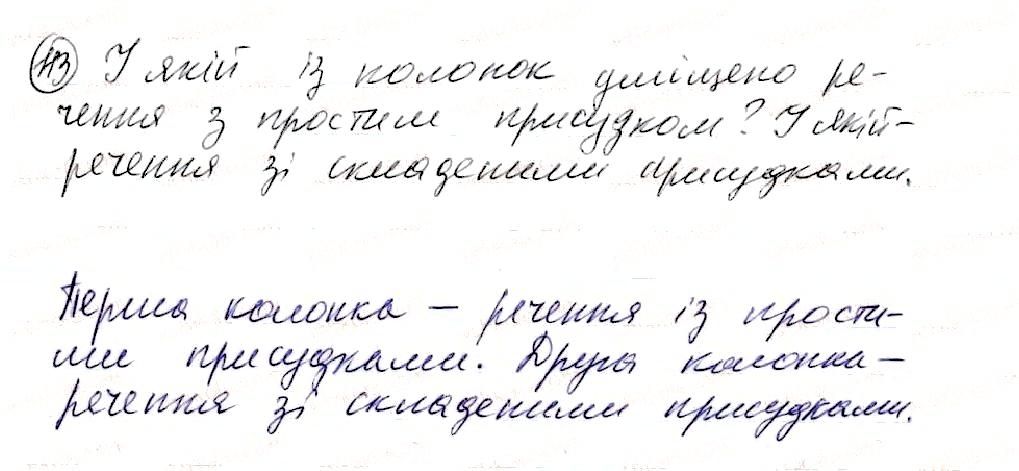 43 У якій із колонок уміщено ре-
чення з простим присудком? У якій-
речення зі складеними присудками.
Перша колонка - речення із прости-
ми присудками. Друга колонка -
речення зі складеними присудками.